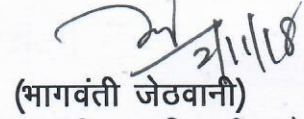 2/11/18
(भागवंती जेठवानी)